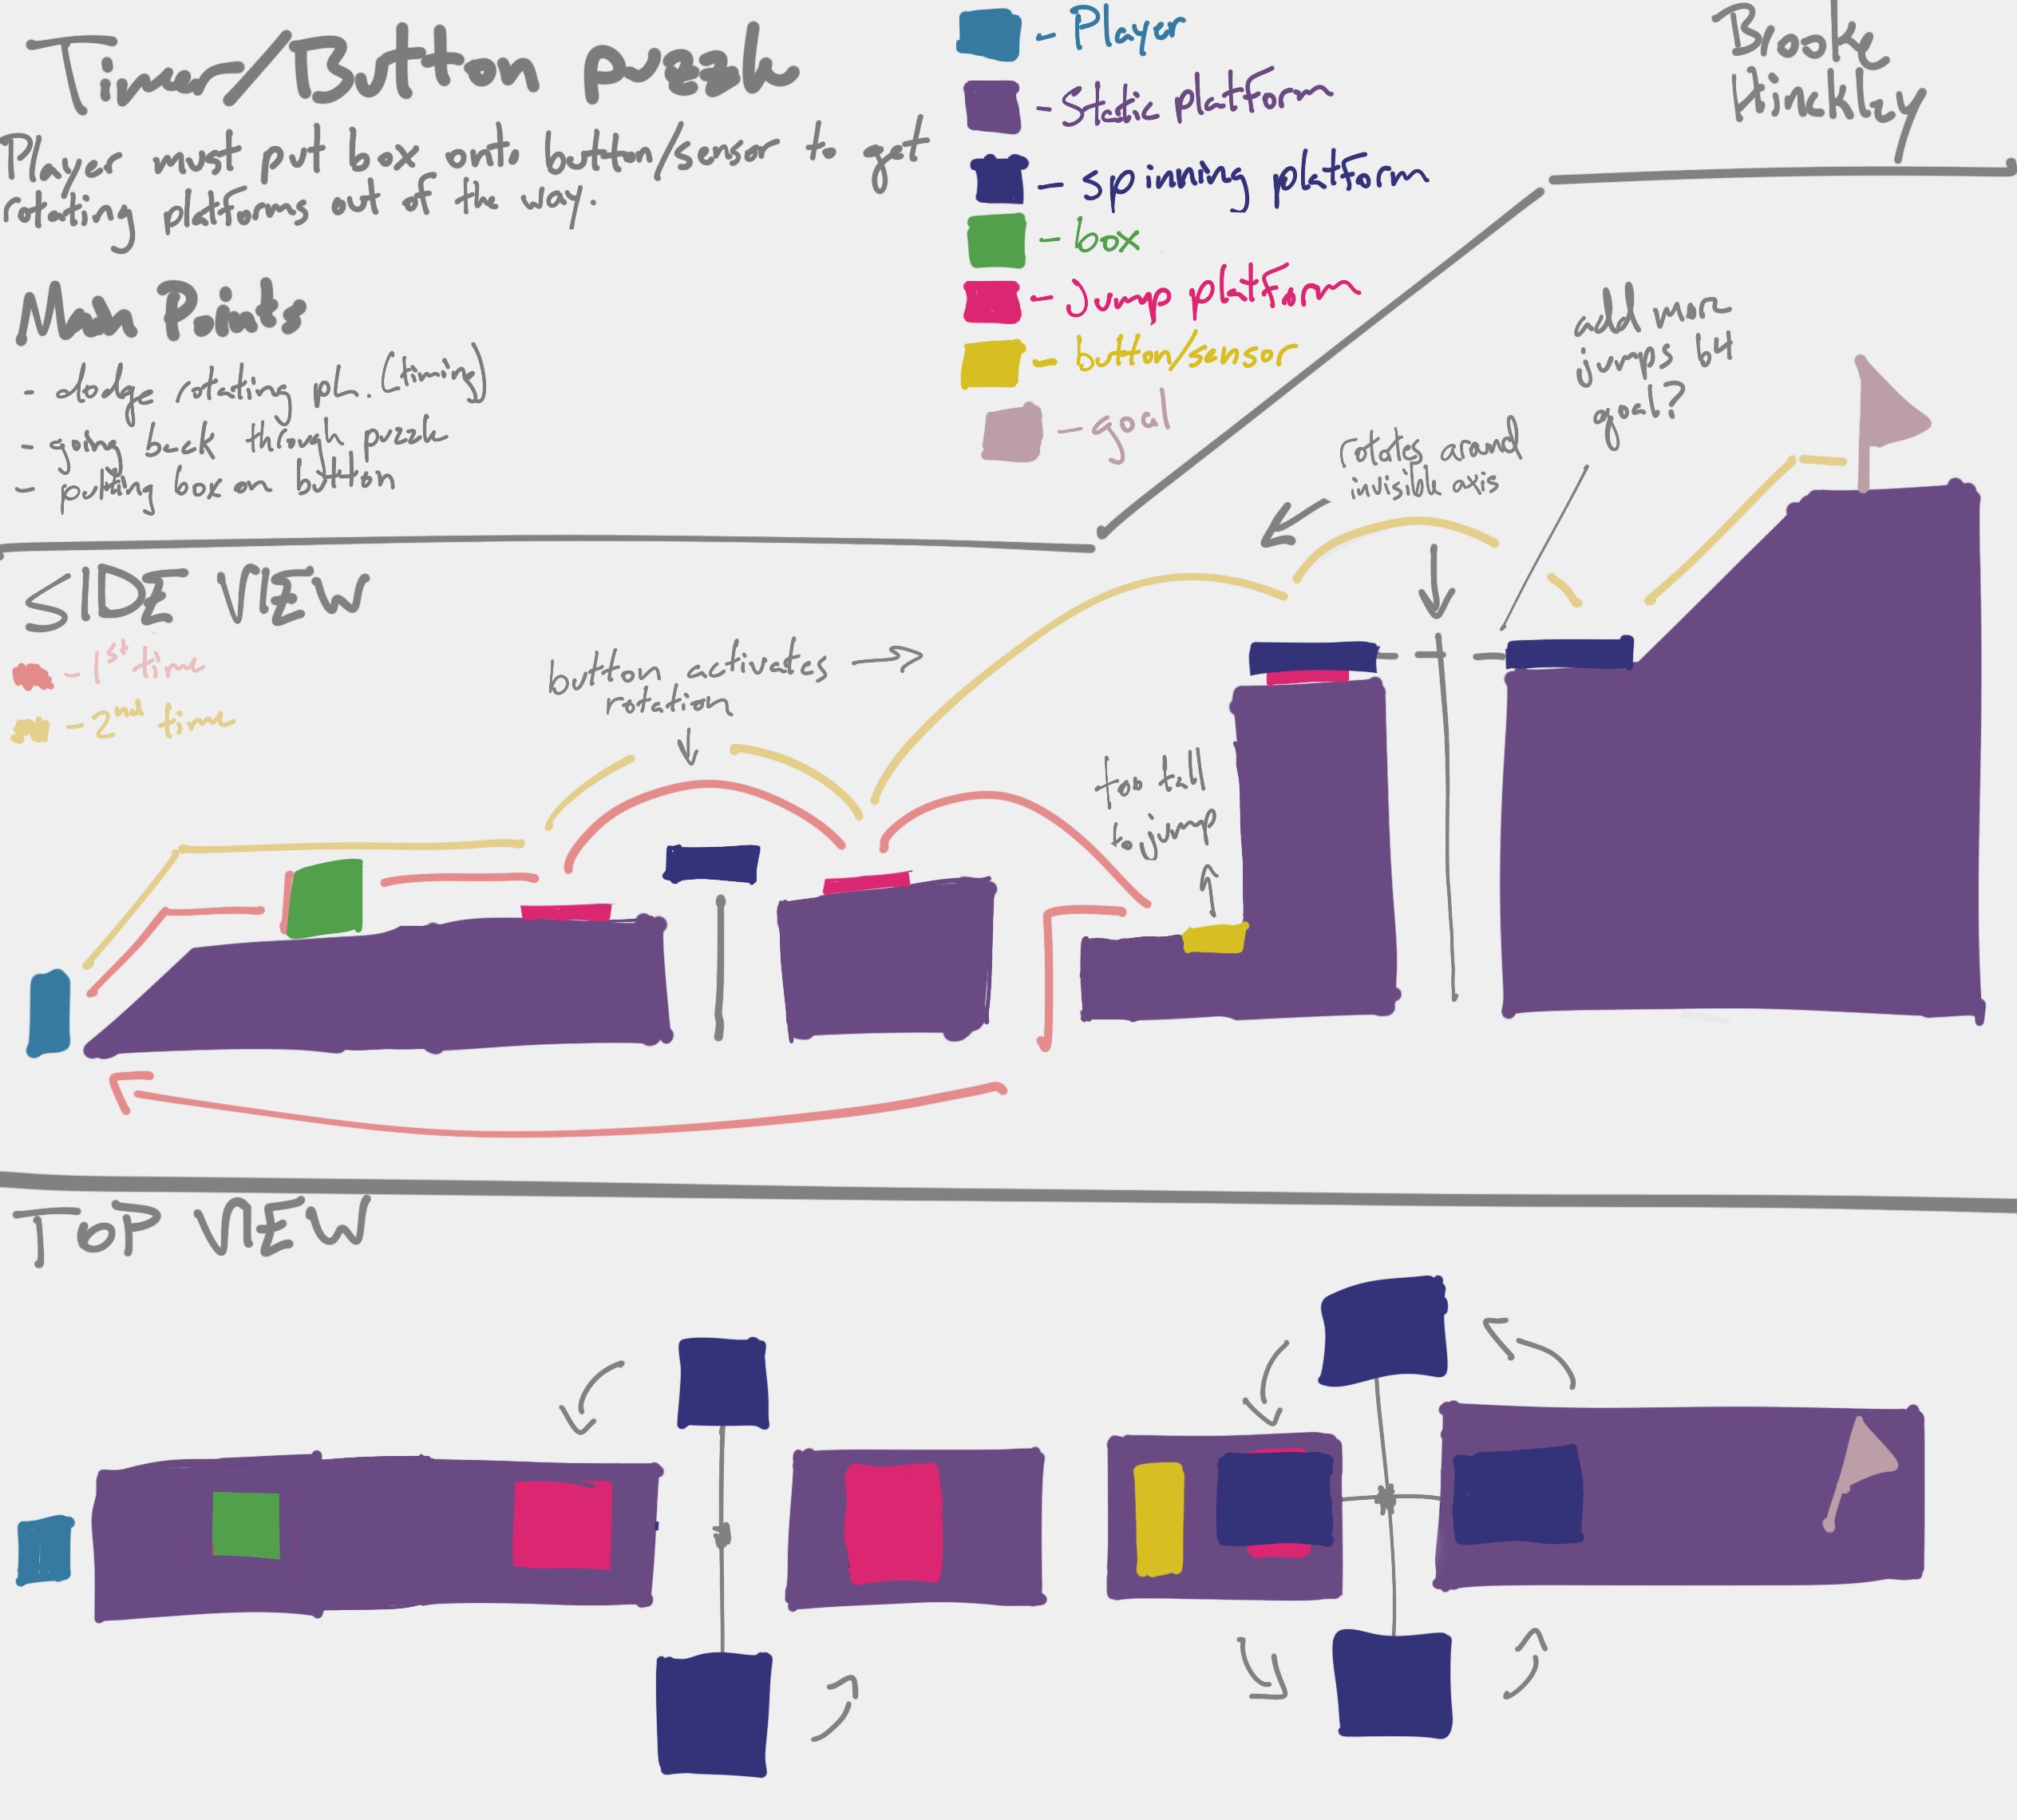 Timer/Button puzzle
Player must put box onto button/sensor to get
rotating platforms out of the way.
Main Points
- dodge rotating pl. (timing)
- going back through puzzle
- putting box on button
- Player
- Static platform
- spinning platform
- box
- Jump platform
- button/sensor
- goal
Brooke
Hinckley
SIDE VIEW
- 1st time
- 2nd time
button activates
rotation
too tall
to jump
rotates around
invisible axis
add more
jumps b4
goal?
TOP VIEW